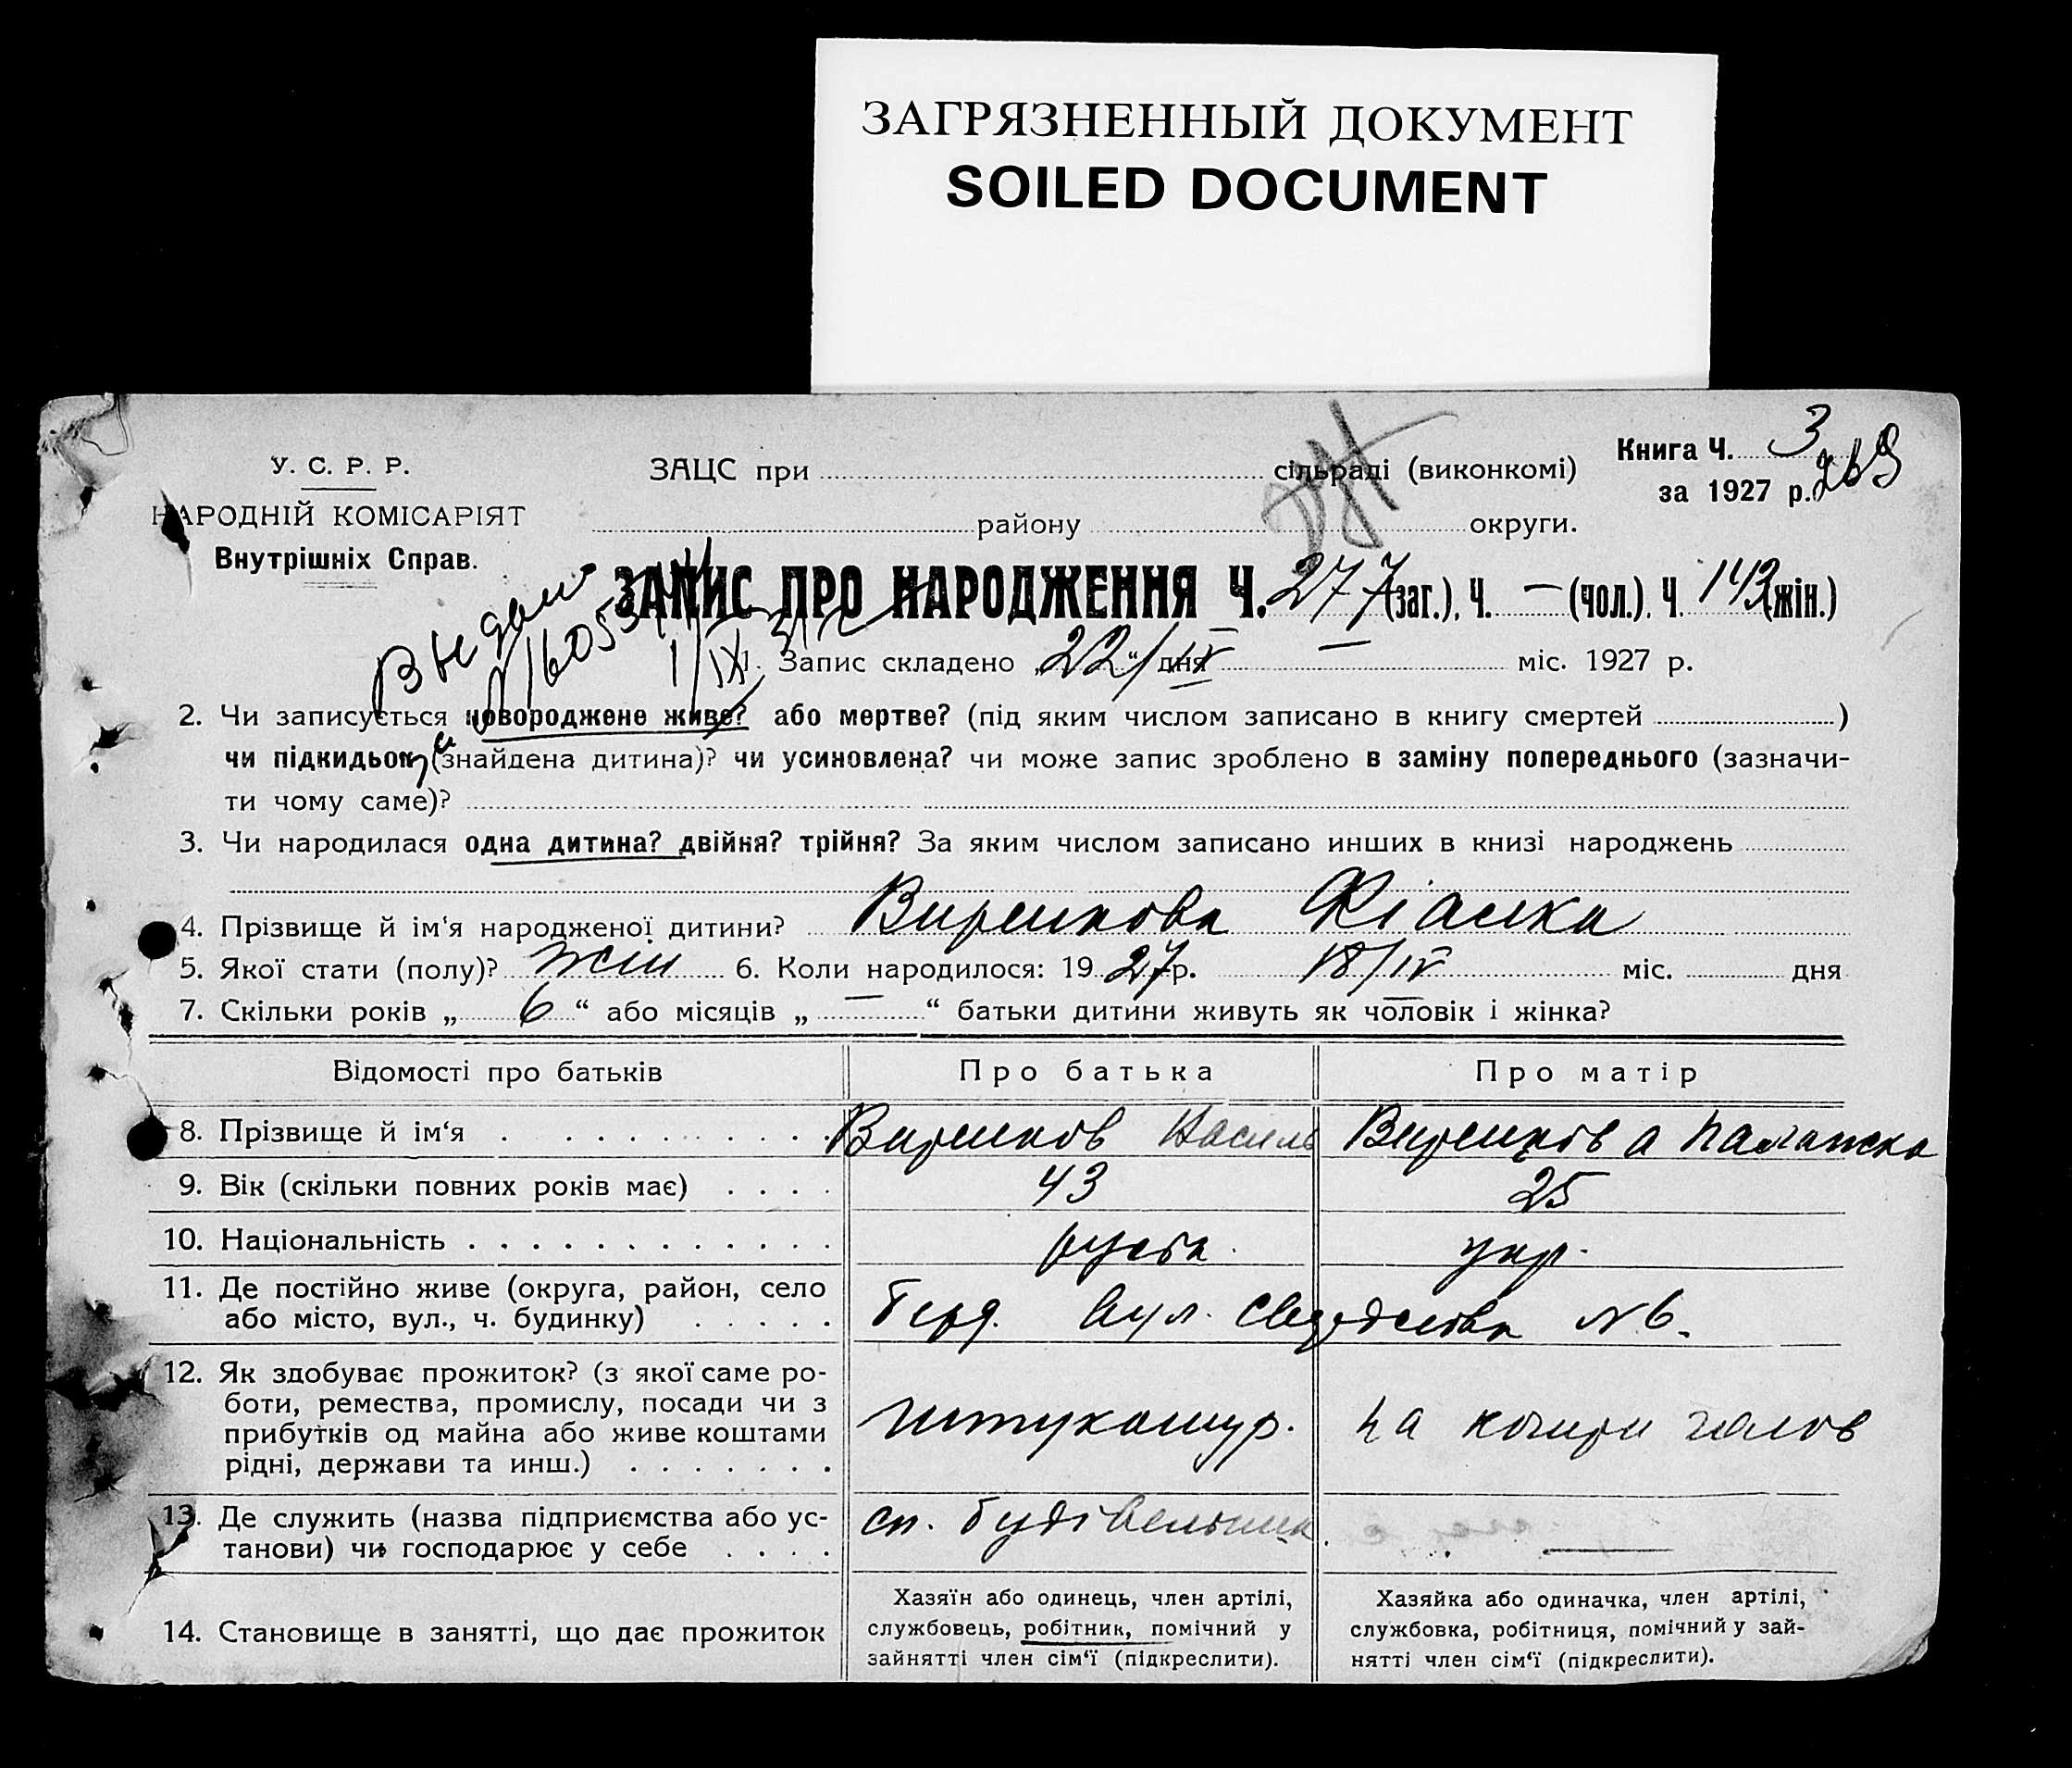 ЗАГРЯЗНЕННЫЙ ДОКУМЕНТ
SOILED DOCUMENT
Книга Ч. 3
за 1927 р. 269
У. С. Р. Р.
НАРОДНІЙ КОМІСАРІЯТ
Внутрішніх Справ.
ЗАЦС при сільраді (виконкомі)
району округи.
ЗАПИС ПРО НАРОДЖЕННЯ Ч. 277 (заг.), Ч. — (чол.), Ч. 143 (жін.)
1. Запис складено „22/IV“ дня — міс. 1927 р.
2. Чи записується новороджене живе? або мертве? (під яким числом записано в книгу смертей )
чи підкидьок (знайдена дитина)? чи усиновлена? чи може запис зроблено в заміну попереднього (зазначи-
ти чому саме)?
3. Чи народилася одна дитина? двійня? трійня? За яким числом записано инших в книзі народжень
4. Прізвище й ім‘я народженої дитини?
5. Якої стати (полу)? жін 6. Коли народилося: 1927 р. 18/IV міс. дня
7. Скільки років „ 6 “ або місяців „ — “ батьки дитини живуть як чоловік і жінка?
Відомості про батьків Про батька Про матір
8. Прізвище й ім‘я
9. Вік (скільки повних років має) 43 25
10. Національність укр.
11. Де постійно живе (округа, район, село
або місто, вул., ч. будинку) Берд. вул. № 6.
12. Як здобуває прожиток? (з якої саме ро-
боти, ремества, промислу, посади чи з
прибутків од майна або живе коштами
рідні, держави та инш.) штукатур. на
13. Де служить (назва підприємства або ус-
танови) чи господарює у себе сп. будівельник —
14. Становище в занятті, що дає прожиток
Хазяїн або одинець, член артілі,
службовець, робітник, помічний у
зайнятті член сім‘ї (підкреслити).
Хазяйка або одиначка, член артілі,
службовка, робітниця, помічний у зай-
нятті член сім‘ї (підкреслити).